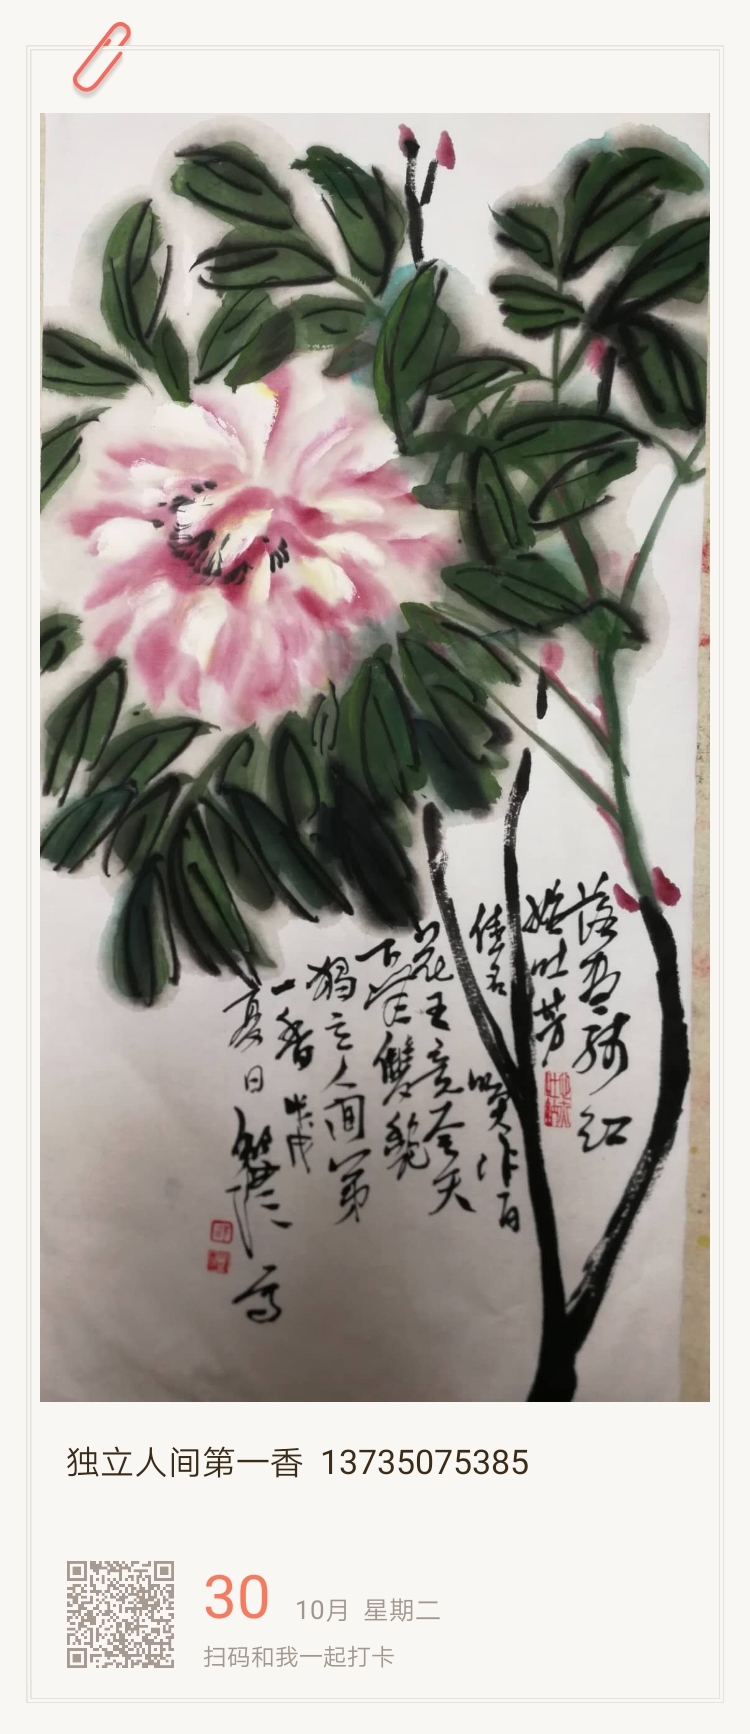 落尽残红
始吐芳
佳名唤作百
花王竞夸天
下無雙艷
獨立人间第
一香 戊戌
夏日
写
独立人间第一香 13735075385
30 10月 星期二
扫码和我一起打卡